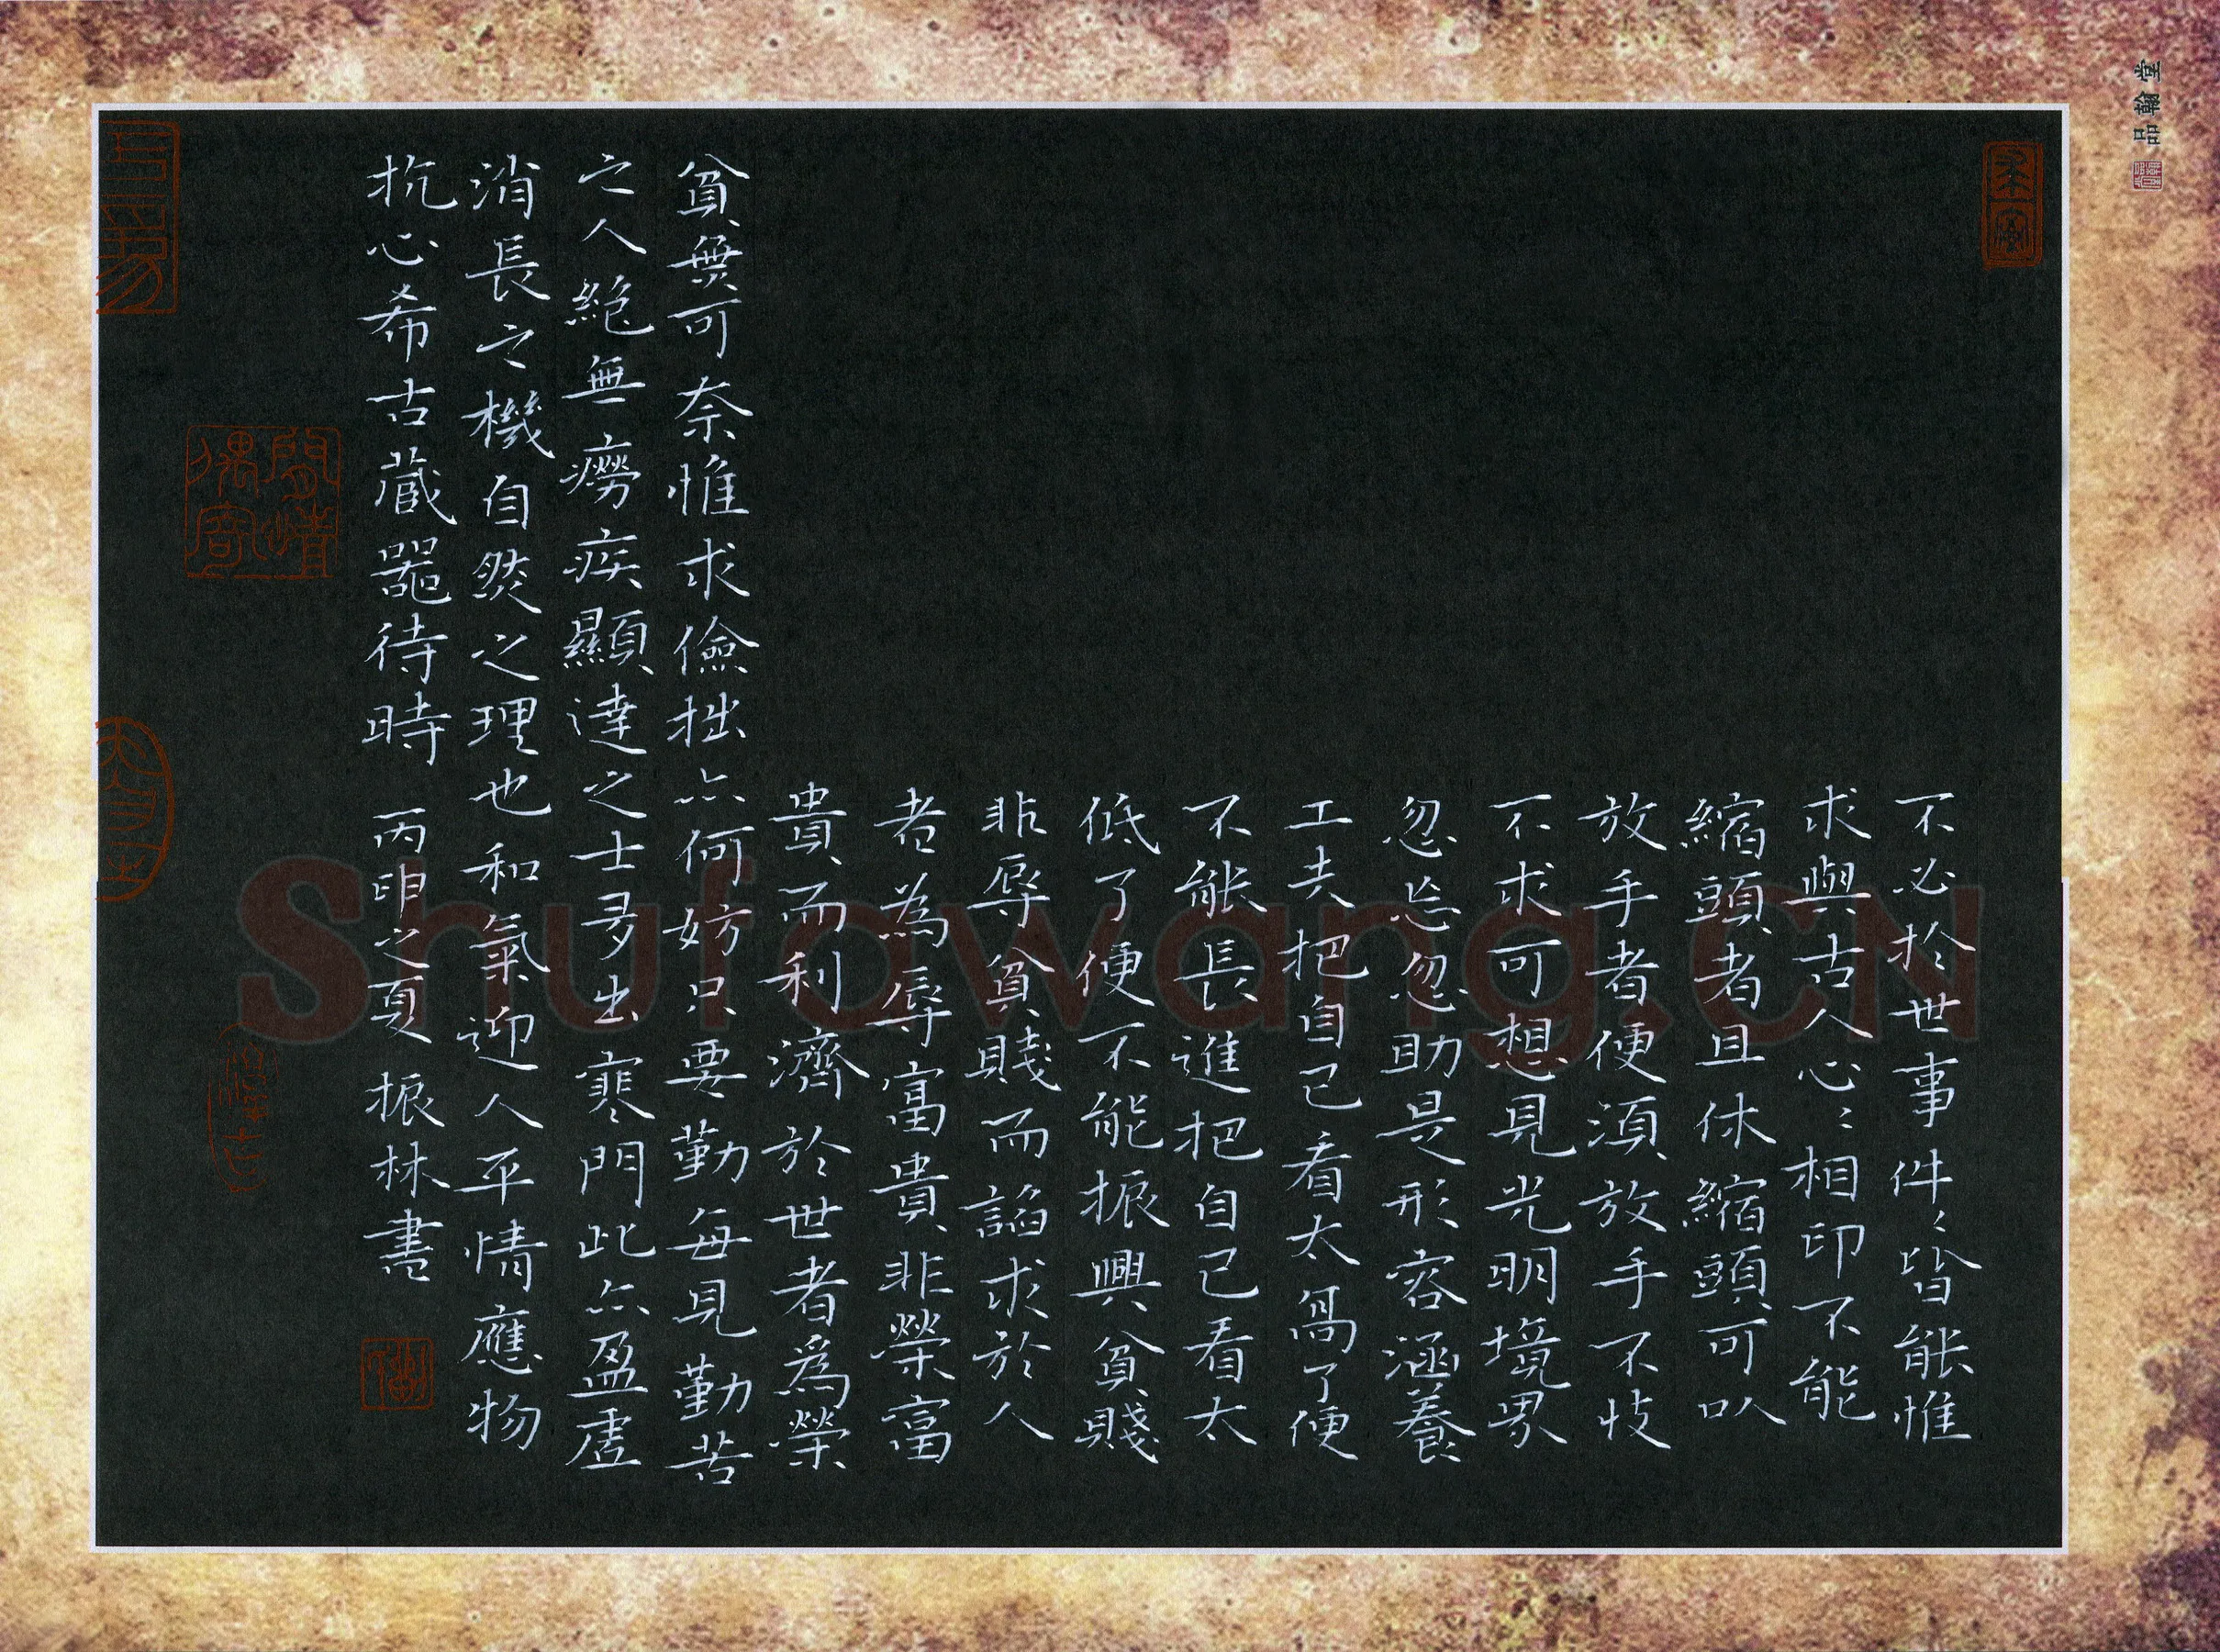 不必於世事件々皆能惟
求與古人心々相印不能
縮頭者且休縮頭可以
放手者便須放手不忮
不求可想見光明境界
忽忘忽助是形容涵養
工夫把自己看太高了便
不能長進把自己看太
低了便不能振興貧賤
非辱貧賤而諂求於人
者為辱富貴非榮富
貴而利濟於世者為榮
貧無可奈惟求儉拙亦何妨只要勤每見勤苦
之人絕無癆疾顯達之士多出寒門此亦盈虛
消長之機自然之理也和氣迎人平情應物
抗心希古藏器待時 丙申之夏振林書
品翰堂
Shufawang.CN